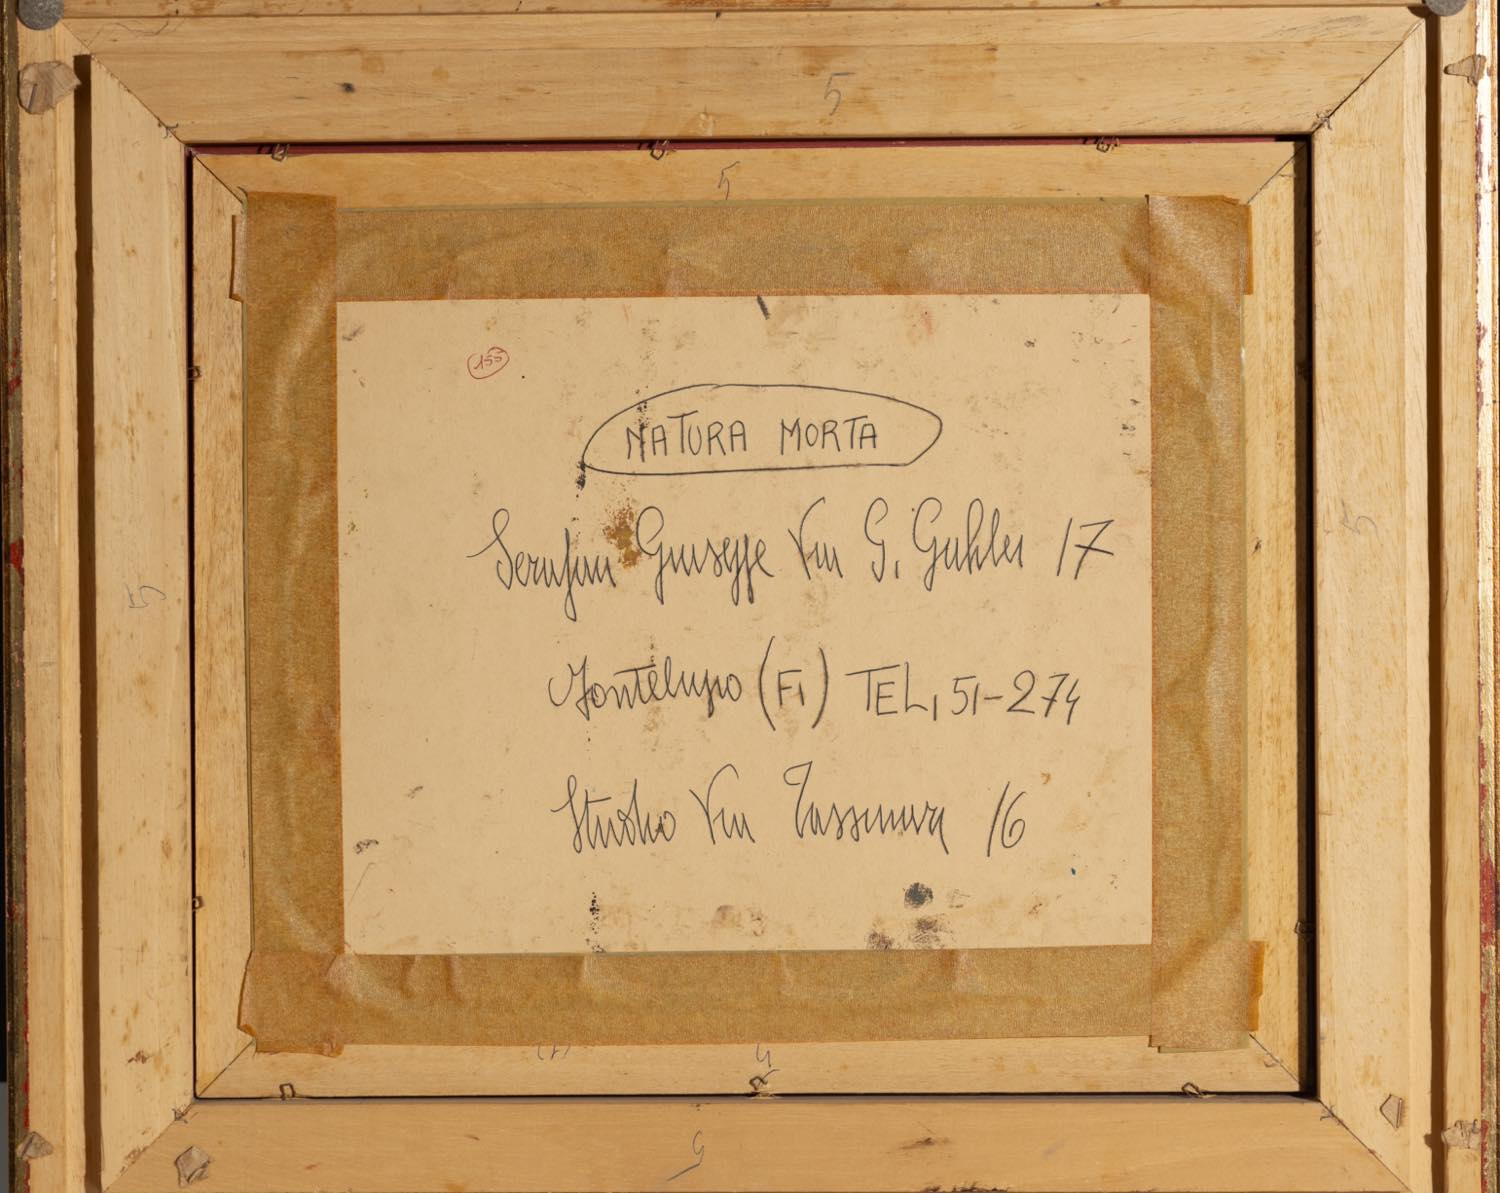 5
5
155
NATURA MORTA
Serafini Giuseppe Via G. 17
5
5
Montelupo (FI) TEL, 51-274
Studio Via 16
5